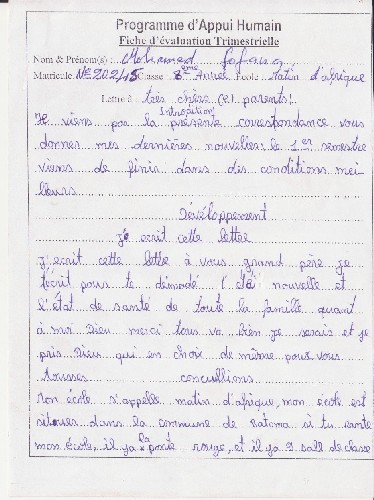 Programme d'Appui Humain
Fiche d'évaluation Trimestrielle
Nom & Prénom(s) : Mohamed
Matricule N° 20248 Classe 8ème Année École Matin d'afrique
Lettre à : très chère (e) parents!
Introduction
Je viens par la présente corespondance vous
donnes mes dernières nouvelles: le 1er semestre
viens de finir dans des conditions mei
lleurs
Développement
j'é ecrit cette lettre
j'écrit cette lettre à vous grand père je
t'écrit pour te demadé l'été nouvelle et
l'état de santé de toute la famille quant
à moi Dieu merci tous va bien je serais et je
pris Dieu qui en choix de même pour vous
tousses conculiions
Mon école s'appelle matin d'afrique, mon école est
situes dans la commune de ratoma si tu rente
mon école, il ya la porte rouge, et il ya 9 sall de classe